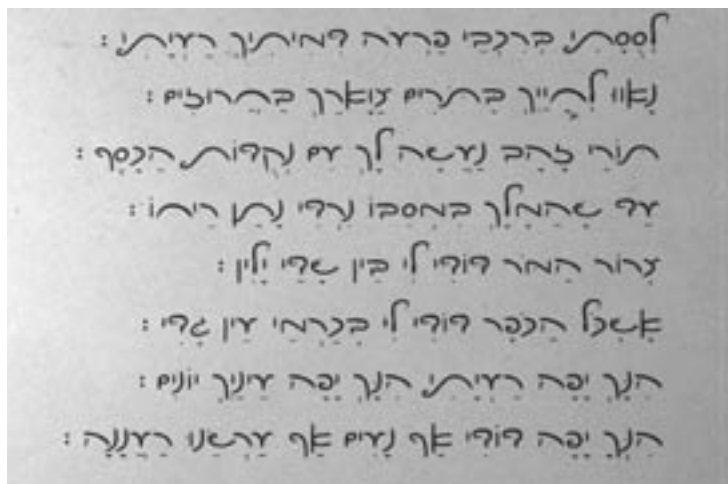 לְסֻסָתִי בְּרִכְבֵי פַרְעֹה דִּמִּיתִיךְ רַעְיָתִי :
נָאווּ לְחָיַיִךְ בַּתֹּרִים צַוָּארֵךְ בַּחֲרוּזִים :
תּוֹרֵי זָהָב נַעֲשֶׂה לָּךְ עִם נְקֻדּוֹת הַכָּסֶף :
עַד שֶׁהַמֶּלֶךְ בִּמְסִבּוֹ נִרְדִּי נָתַן רֵיחוֹ :
צְרוֹר הַמֹּר דּוֹדִי לִי בֵּין שָׁדַי יָלִין :
אֶשְׁכֹּל הַכֹּפֶר דּוֹדִי לִי בְּכַרְמֵי עֵין גֶּדִי :
הִנָּךְ יָפָה רַעְיָתִי הִנָּךְ יָפָה עֵינַיִךְ יוֹנִים :
הִנְּךָ יָפֶה דוֹדִי אַף נָעִים אַף עַרְשֵׂנוּ רַעֲנָנָה :